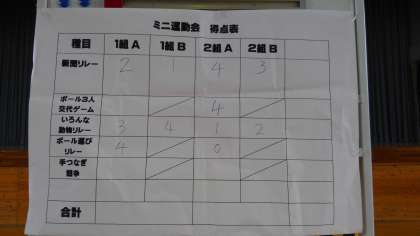 ミニ運動会 得点表
種目 1組A 1組B 2組A 2組B
新聞リレー 2 1 4 3
ボール3人
交代ゲーム 4
いろんな
動物リレー 3 4 1 2
ボール運び
リレー 4 0
手つなぎ
競争
合計